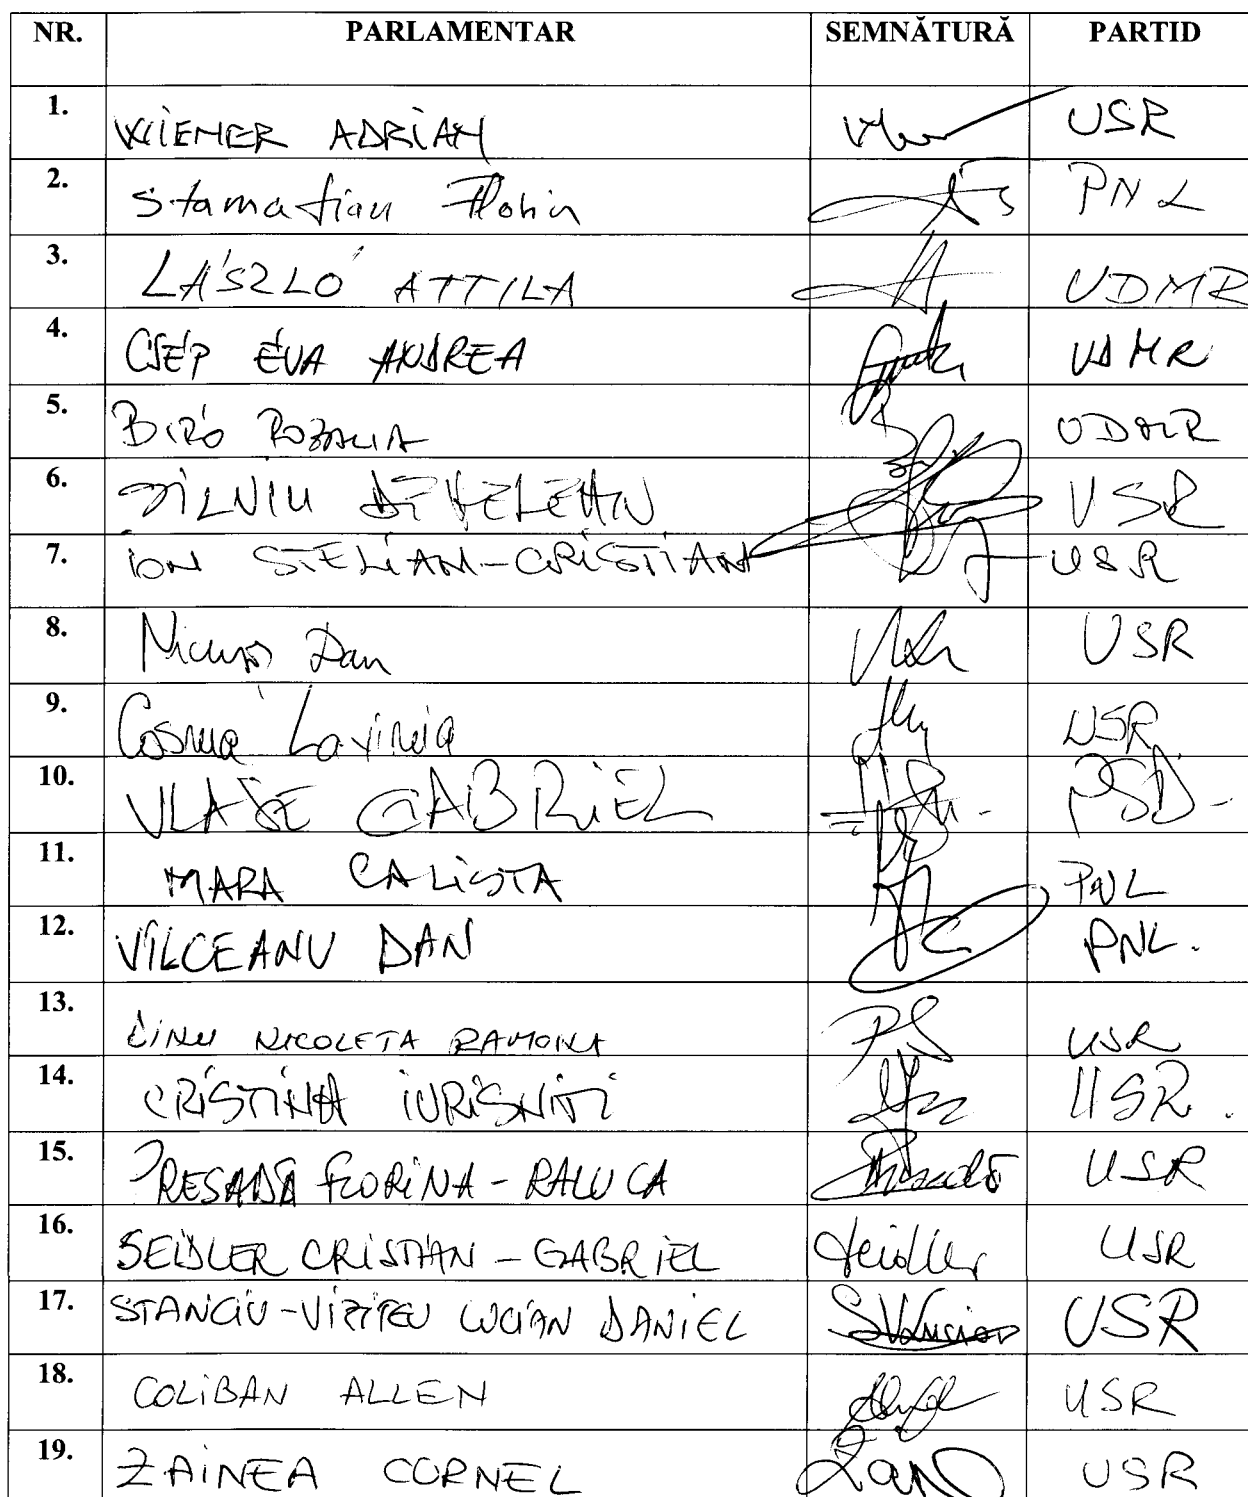 NR. PARLAMENTAR SEMNĂTURĂ PARTID
1. WIENER ADRIAN USR
2. Stamatian Florin PNL
3. LÁSZLÓ ATTILA UDMR
4. CSÉP ÉVA ANDREA UDMR
5. BIRÓ ROZALIA UDMR
6. SILVIU DEHELEAN USR
7. ION STELIAN-CRISTIAN USR
8. Nicușor Dan USR
9. Cosma Lavinia USR
10. VLASE GABRIEL PSD-
11. MARA CALISTA PNL
12. VÎLCEANU DAN PNL.
13. DINU NICOLETA RAMONA USR
14. CRISTINA IURISNITI USR.
15. PRESADĂ FLORINA-RALUCA USR
16. SEIDLER CRISTIAN-GABRIEL Seidler USR
17. STANCIU-VIZITEU LUCIAN DANIEL USR
18. COLIBAN ALLEN USR
19. ZAINEA CORNEL USR